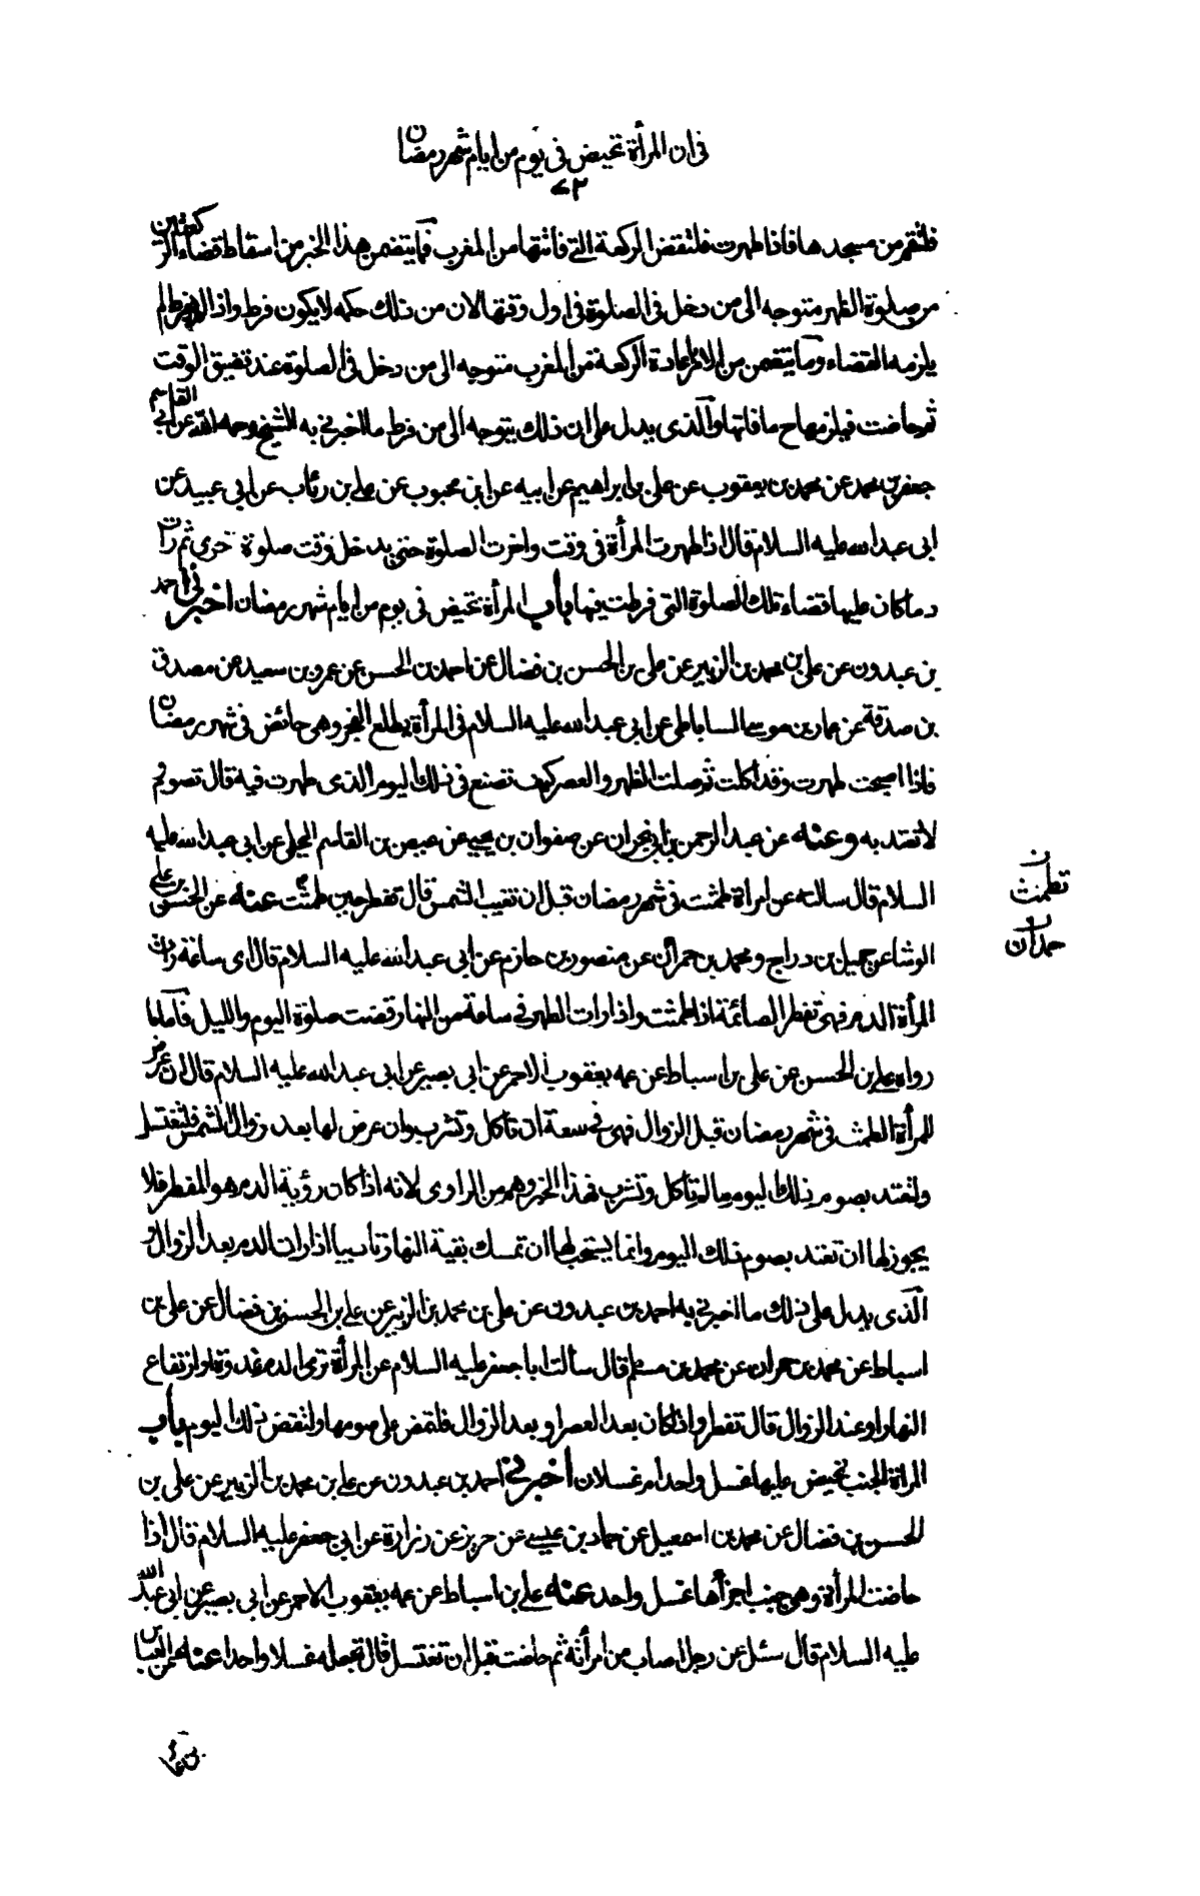 فى ان المرأة تحيض فى يوم من ايام شهر رمضان
٧٢
فلتقم من مسجدها فاذا طهرت فلتقض الركعة التي فاتتها من المغرب فما يتضمن هذا الخبر من اسقاط قضاء الركعتين
من صلوة الظهر متوجه الى من دخل فى الصلوة فى اول وقتها لان من ذلك حكمه لا يكون فرط واذا لم يفرط لم
يلزمه القضاء وما يتضمن من الامر باعادة الركعة من المغرب متوجه الى من دخل فى الصلوة عند تضيق الوقت
ثم حاضت فيلزمها ح ما فاتها والذى يدل على ان ذلك يتوجه الى من فرط ما اخبرني به الشيخ رحمه الله عن ابي القاسم
جعفر بن محمد عن محمد بن يعقوب عن على بن ابراهيم عن ابيه عن ابن محبوب عن علي بن رئاب عن ابي عبيدة عن
ابى عبد الله عليه السلام قال اذا طهرت المرأة فى وقت واخرت الصلوة حتى يدخل وقت صلوة اخرى ثم رات
دما كان عليها قضاء تلك الصلوة التى فرطت فيها باب المرأة تحيض فى يوم من ايام شهر رمضان اخبرني احمد
بن عبدون عن على بن محمد بن الزبير عن على بن الحسن بن فضال عن احمد بن الحسن عن عمرو بن سعيد عن مصدق
بن صدقة عن عمار بن موسى الساباطي عن ابى عبد الله عليه السلام فى المرأة يطلع الفجر وهى حائض فى شهر رمضان
فاذا اصبحت طهرت وقد اكلت ثم صلت الظهر والعصر كيف تصنع فى ذلك اليوم الذى طهرت فيه قال تصوم
لا تعتد به وعنه عن عبد الرحمن بن ابي نجران عن صفوان بن يحيى عن عيص بن القاسم البجلي عن ابى عبد الله عليه
السلام قال سالته عن امراة طمثت فى شهر رمضان قبل ان تغيب الشمس قال تفطر حين طمثت عنه عن الحسن بن علي
الوشا عن جميل بن دراج ومحمد بن حمران عن منصور بن حازم عن ابى عبد الله عليه السلام قال اى ساعة رات
المرأة الدم فهى تفطر الصائمة اذا طمثت واذا رات الطهر فى ساعة من النهار قضت صلوة اليوم والليل فاما ما
رواه علي بن الحسن عن على بن اسباط عن عمه يعقوب الاحمر عن ابى بصير عن ابى عبد الله عليه السلام قال ان عرض
للمرأة الطمث فى شهر رمضان قبل الزوال فهى فى سعة ان تاكل وتشرب وان عرض لها بعد زوال الشمس فلتغتسل
ولتعتد بصوم ذلك اليوم ما لم تاكل وتشرب فهذا الخبر وهم من الراوى لانه اذا كان رؤية الدم هو المفطر فلا
يجوز لها ان تعتد بصوم ذلك اليوم وانما يستحب لها ان تمسك بقية النهار تاديبا اذا رات الدم بعد الزوال و
الذى يدل على ذلك ما اخبرني به احمد بن عبدون عن على بن محمد بن الزبير عن علي بن الحسن بن فضال عن على بن
اسباط عن محمد بن حمران عن محمد بن مسلم قال سألت ابا جعفر عليه السلام عن المرأة ترى الدم غدوة او ارتفاع
النهار او عند الزوال قال تفطر واذا كان بعد العصر او بعد الزوال فلتمض على صومها ولتقض ذلك اليوم باب
المراة الجنب تحيض عليها غسل واحد ام غسلان اخبرني احمد بن عبدون عن علي بن محمد بن الزبير عن على بن
الحسن بن فضال عن محمد بن اسمعيل عن حماد بن عيسى عن حريز عن زرارة عن ابي جعفر عليه السلام قال اذا
حاضت المرأة وهى جنب اجزأها غسل واحد عنه علي بن اسباط عن عمه يعقوب الاحمر عن ابى بصير عن ابى عبد الله
عليه السلام قال سئل عن رجل اصاب من امرأته ثم حاضت قبل ان تغتسل قال تجعله غسلا واحدا عنه عن العباس
تطمث
حمدان